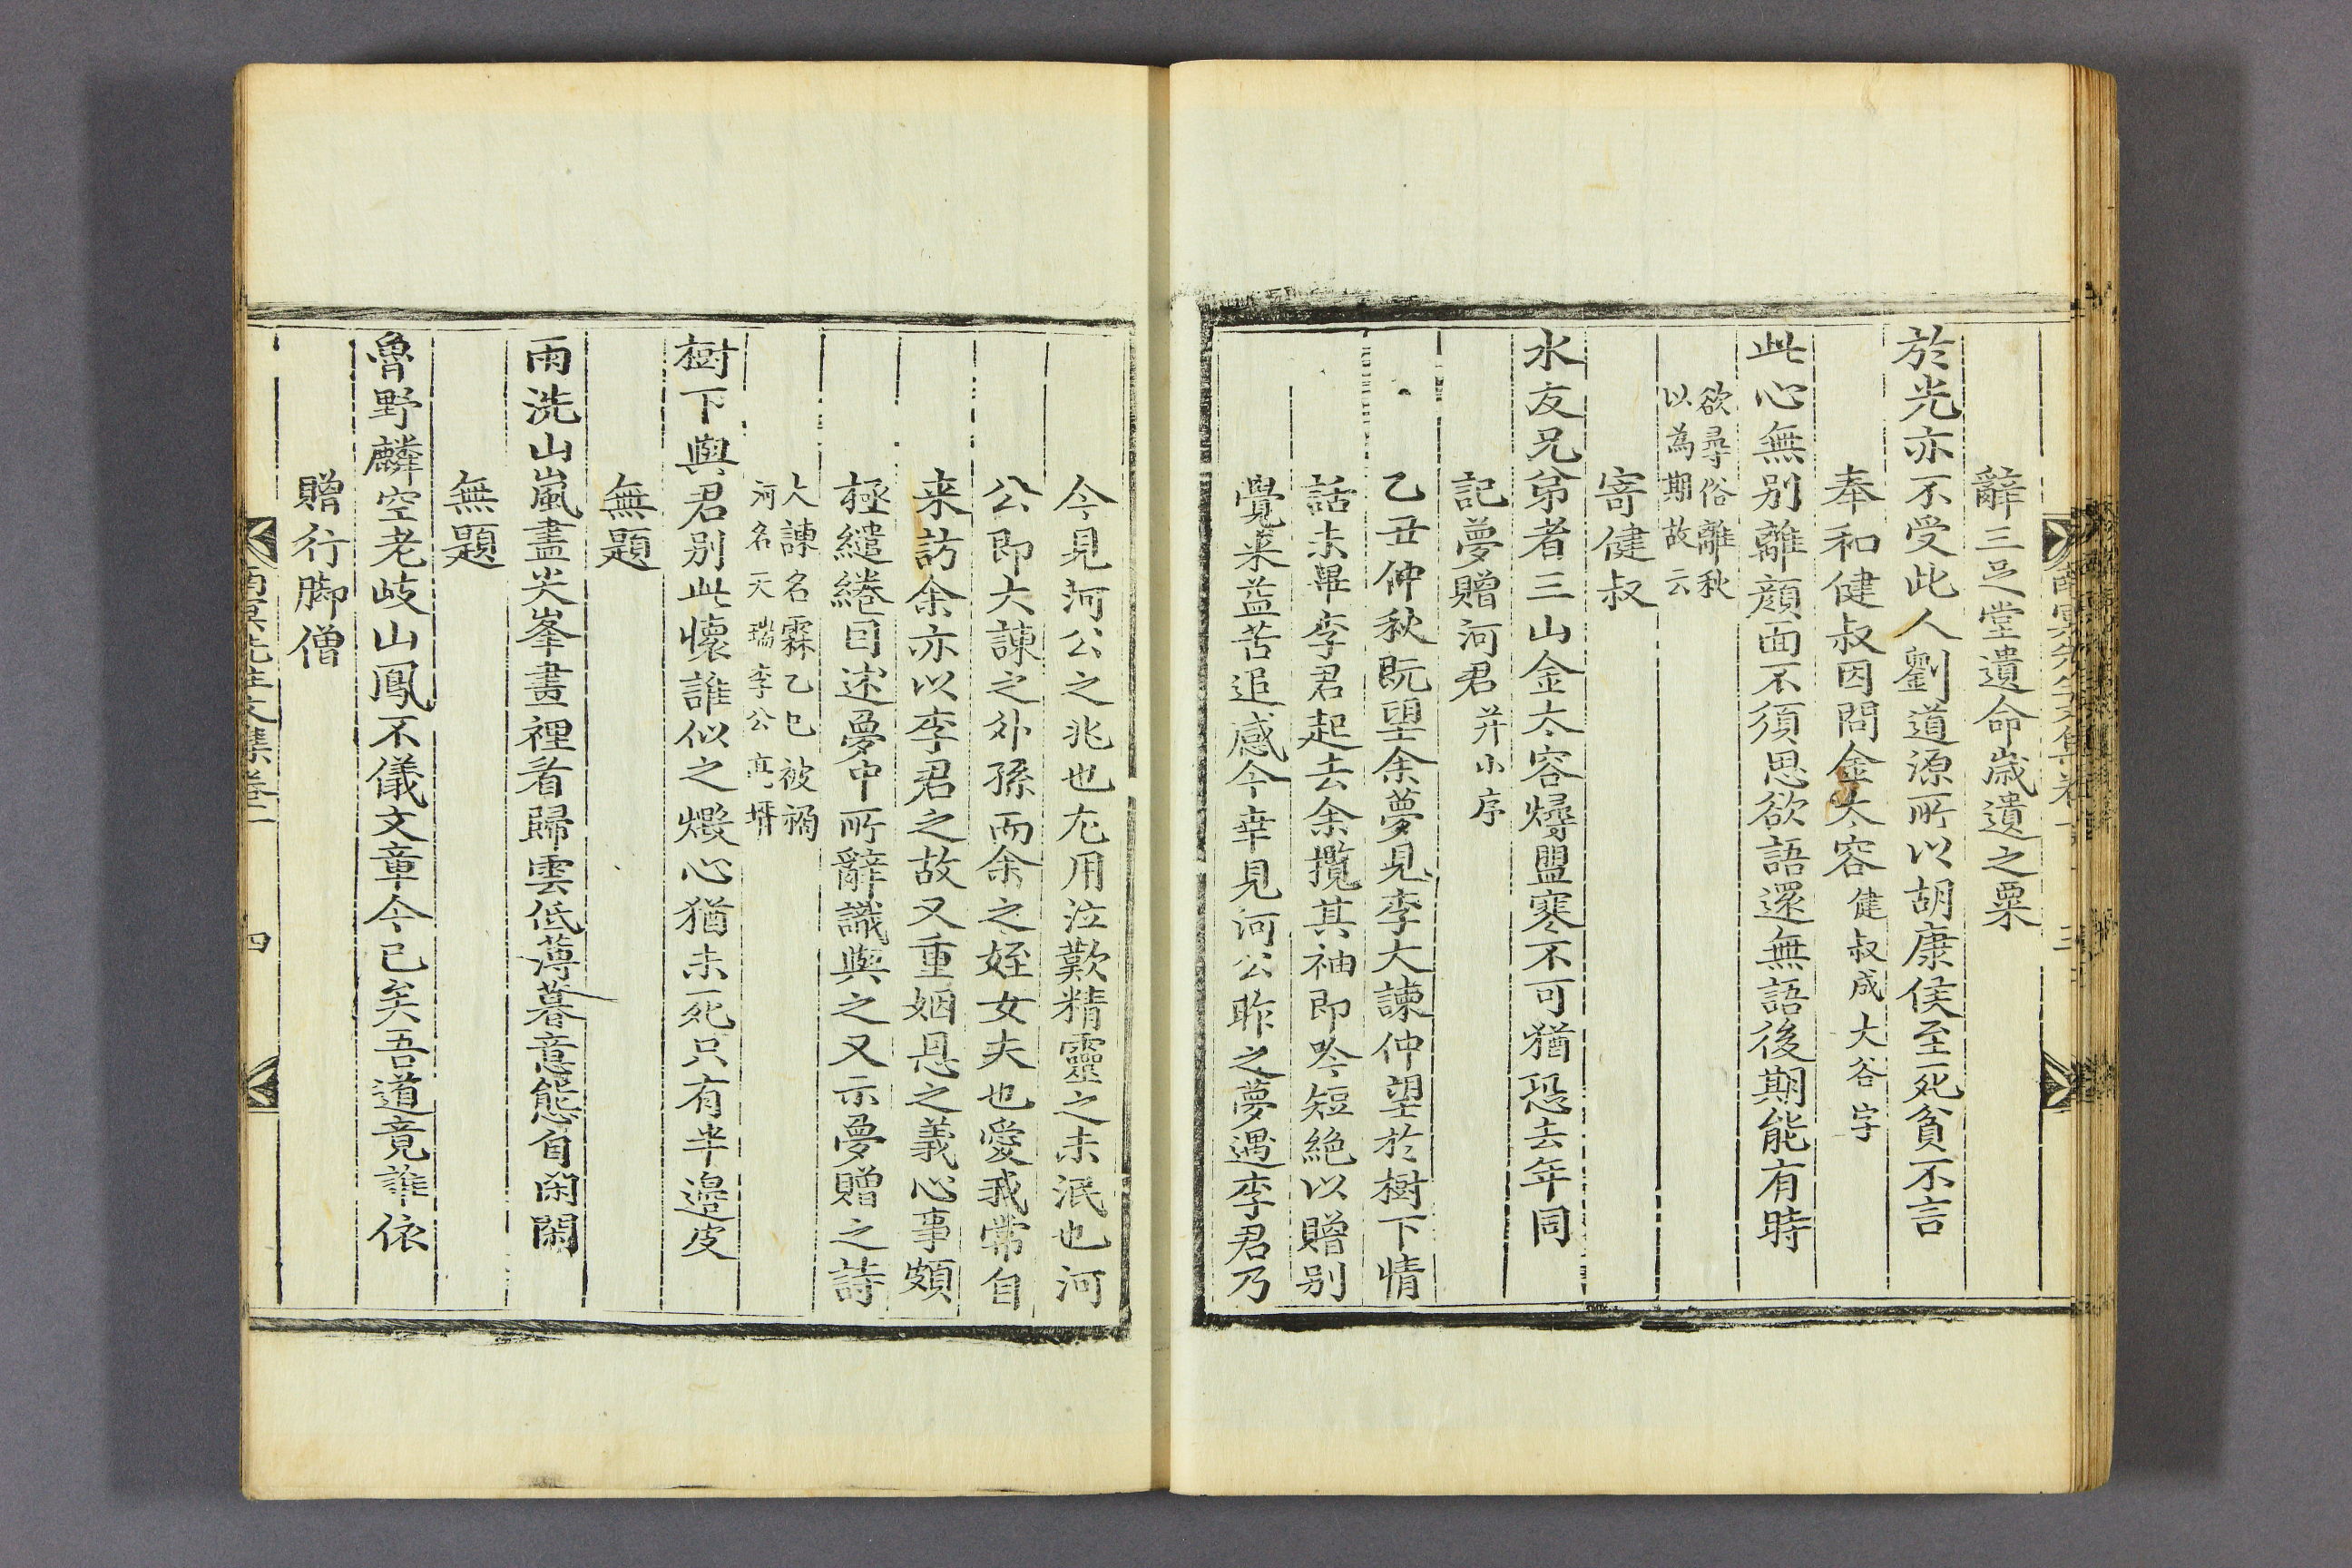 辭三足堂遺命歲遺之粟
於光亦不受此人劉道源所以胡康侯至死貧不言
奉和健叔因問金太容健叔成大谷字
此心無別離顔面不須思欲語還無語後期能有時
欲尋俗離秋
以為期故云
寄健叔
水友兄弟者三山金太容燖盟寒不可猶恐去年同
記夢贈河君并小序
乙丑仲秋旣望余夢見李大諫仲望於樹下情
話未畢李君起去余攬其袖即吟短絶以贈别
覺來益苦追感今幸見河公昨之夢遇李君乃
三
今見河公之兆也尤用泣歎精靈之未泯也河
公即大諫之外孫而余之姪女夫也愛我常自
来訪余亦以李君之故又重姻恩之義心事頗
極繾綣因述夢中所辭識與之又示夢贈之詩
大諫名霖乙巳被禍
河名天瑞李公真壻
樹下與君别此懷誰似之燬心猶未死只有半邊皮
無題
雨洗山嵐盡尖峯畫裡看歸雲低薄暮意態自閑閑
無題
魯野麟空老岐山鳳不儀文章今已矣吾道竟誰依
贈行脚僧
南冥先生文集卷一
四